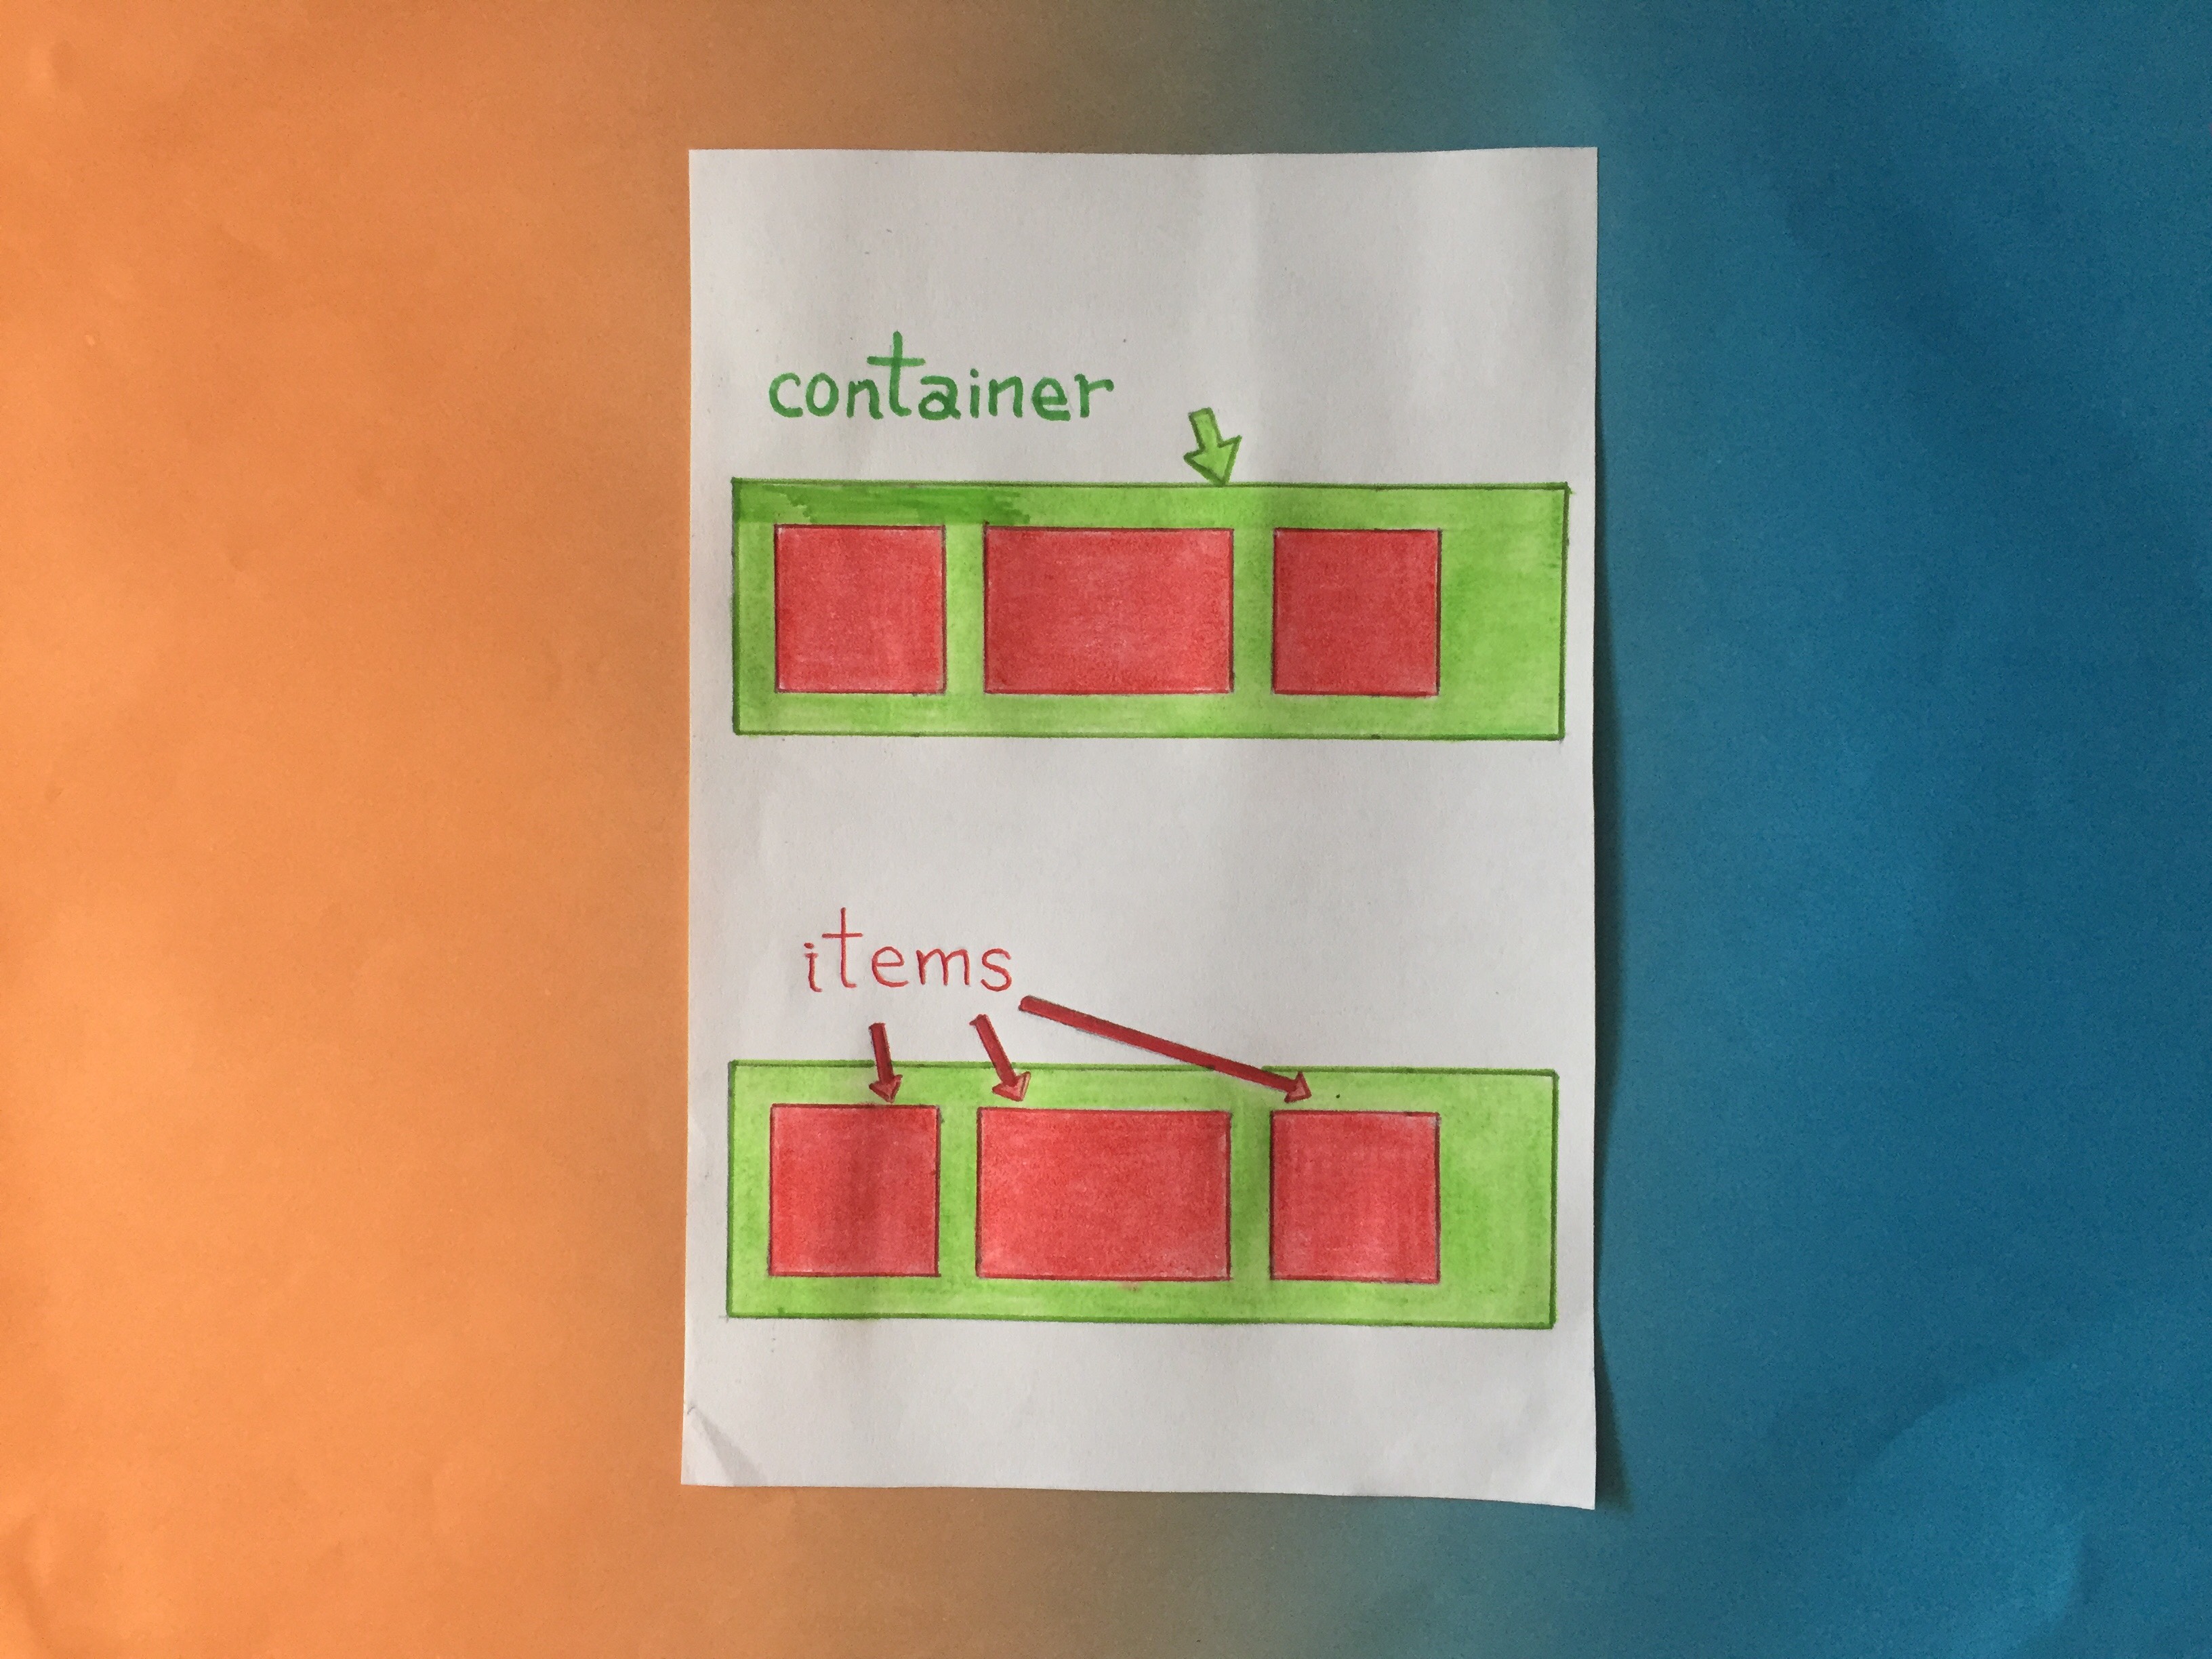 container
items